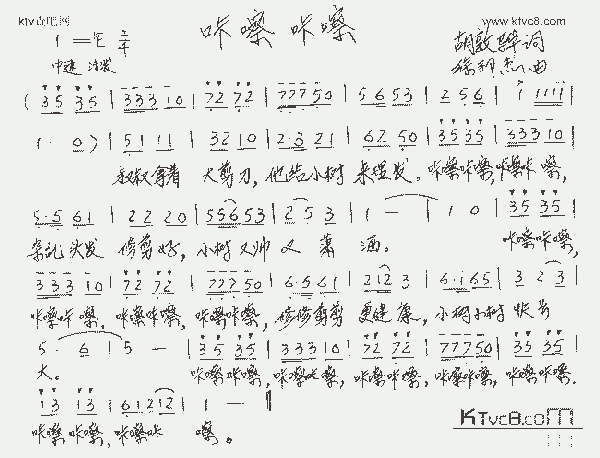 www.ktvc8.com
咔嚓咔嚓
1=E 2/4
胡敦骅词
中速 活发
曲
(35 35 | 333 10 | 72 72 | 777 50 | 5653 | 256 | i 1111 |
1· 0) | 51 11 | 32 10 | 2·3 21 | 62 50 | 35 35 | 333 10 |
叔叔拿着 大剪刀,他给小树 来理发。咔嚓咔嚓,咔嚓咔嚓,
5·5 61 | 22 20 | 55653 | 2 5 3 | 1 - | 1 0 | 35 35 |
杂乱头发 修剪好,小树又帅 又 潇 洒。 咔嚓咔嚓,
333 10 | 72 72 | 777 50 | 6·5 61 | 2123 | 6·165 | 3 2 3 |
咔嚓咔嚓,咔嚓咔嚓,咔嚓咔嚓,修修剪剪 更健康,小树小树 快长
5· 6 | 5 - | 35 35 | 333 10 | 72 72 | 777 50 | 35 35 |
大。 咔嚓咔嚓,咔嚓咔嚓,咔嚓咔嚓,咔嚓咔嚓,咔嚓咔嚓.
13 13 | 61212 | 1 - |
咔嚓咔嚓,咔嚓咔 嚓。
KTvc8.com